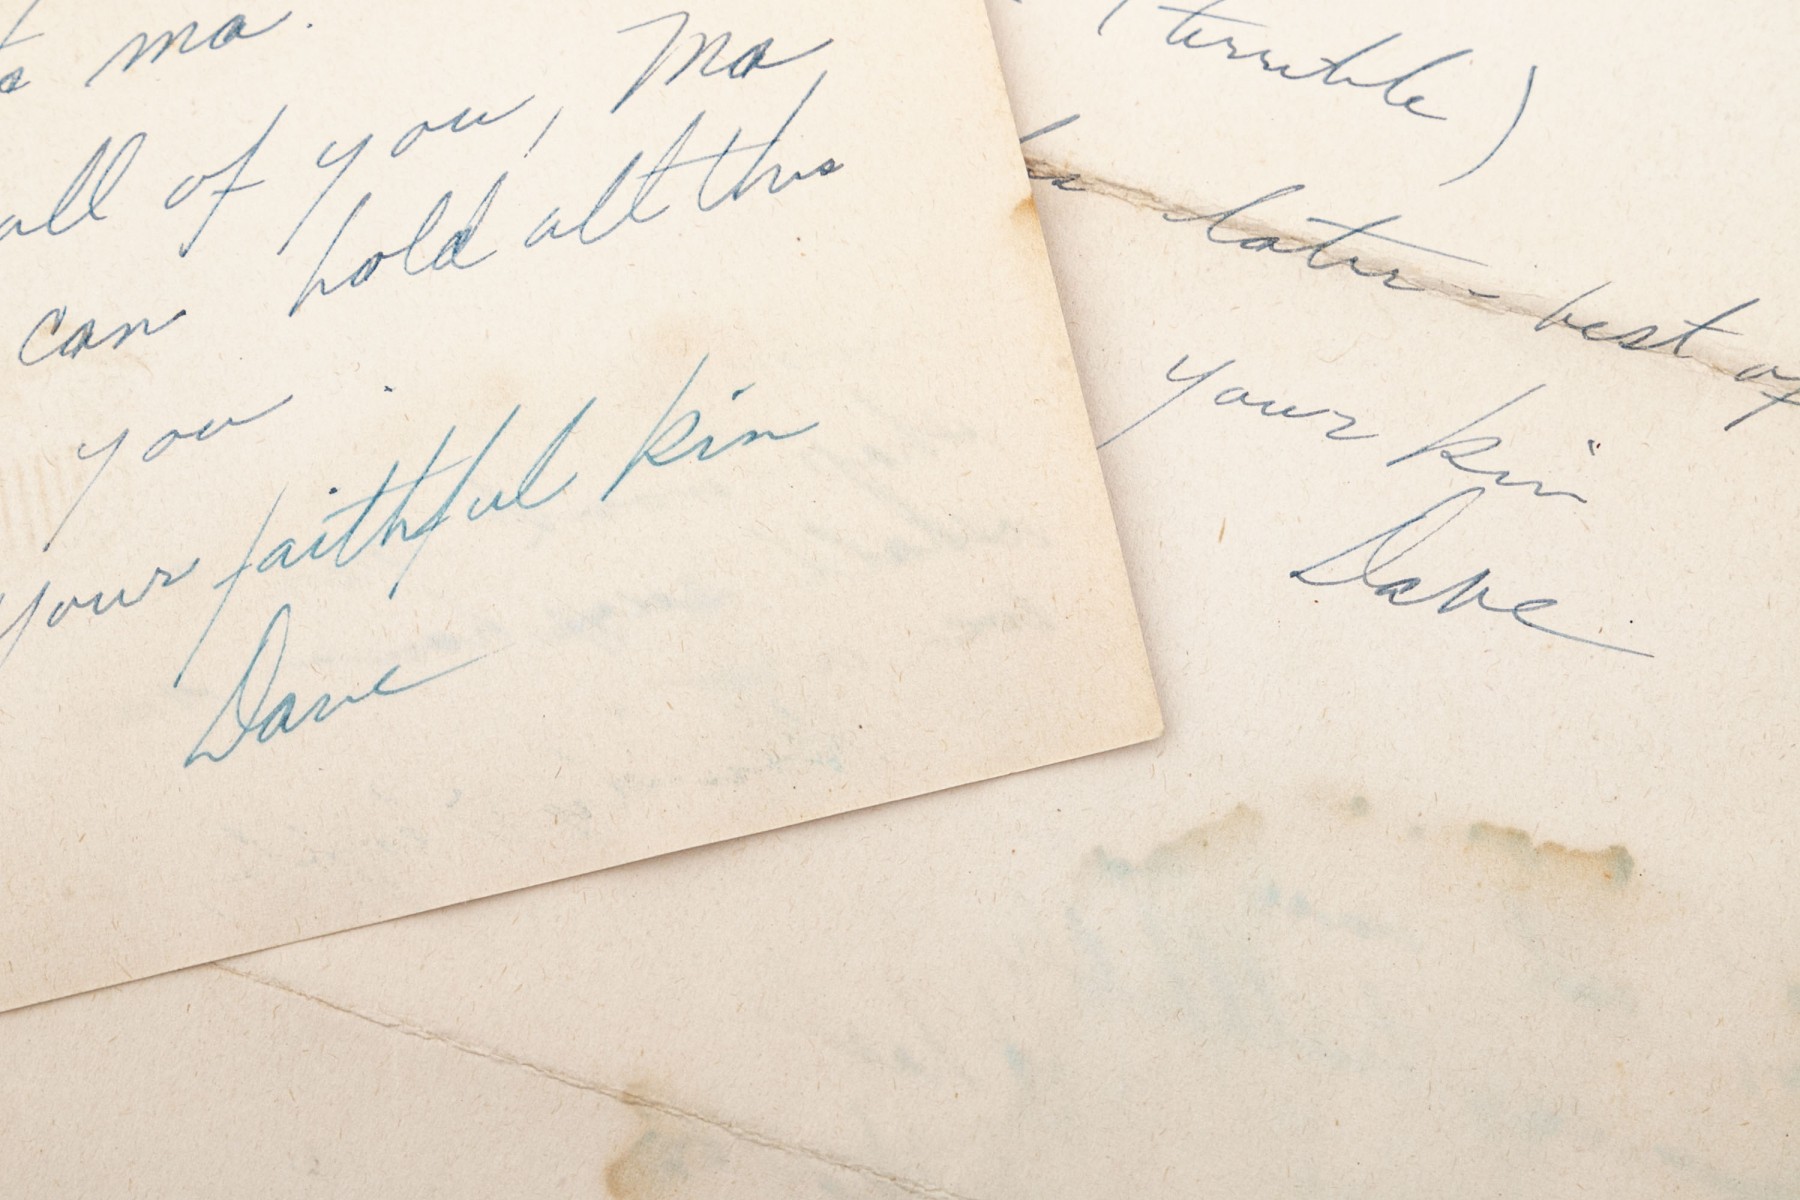 ma.
all of you, Ma
can hold all this
you.
your faithful kin
Dave
(terrible)
later - best of
your kin
Dave